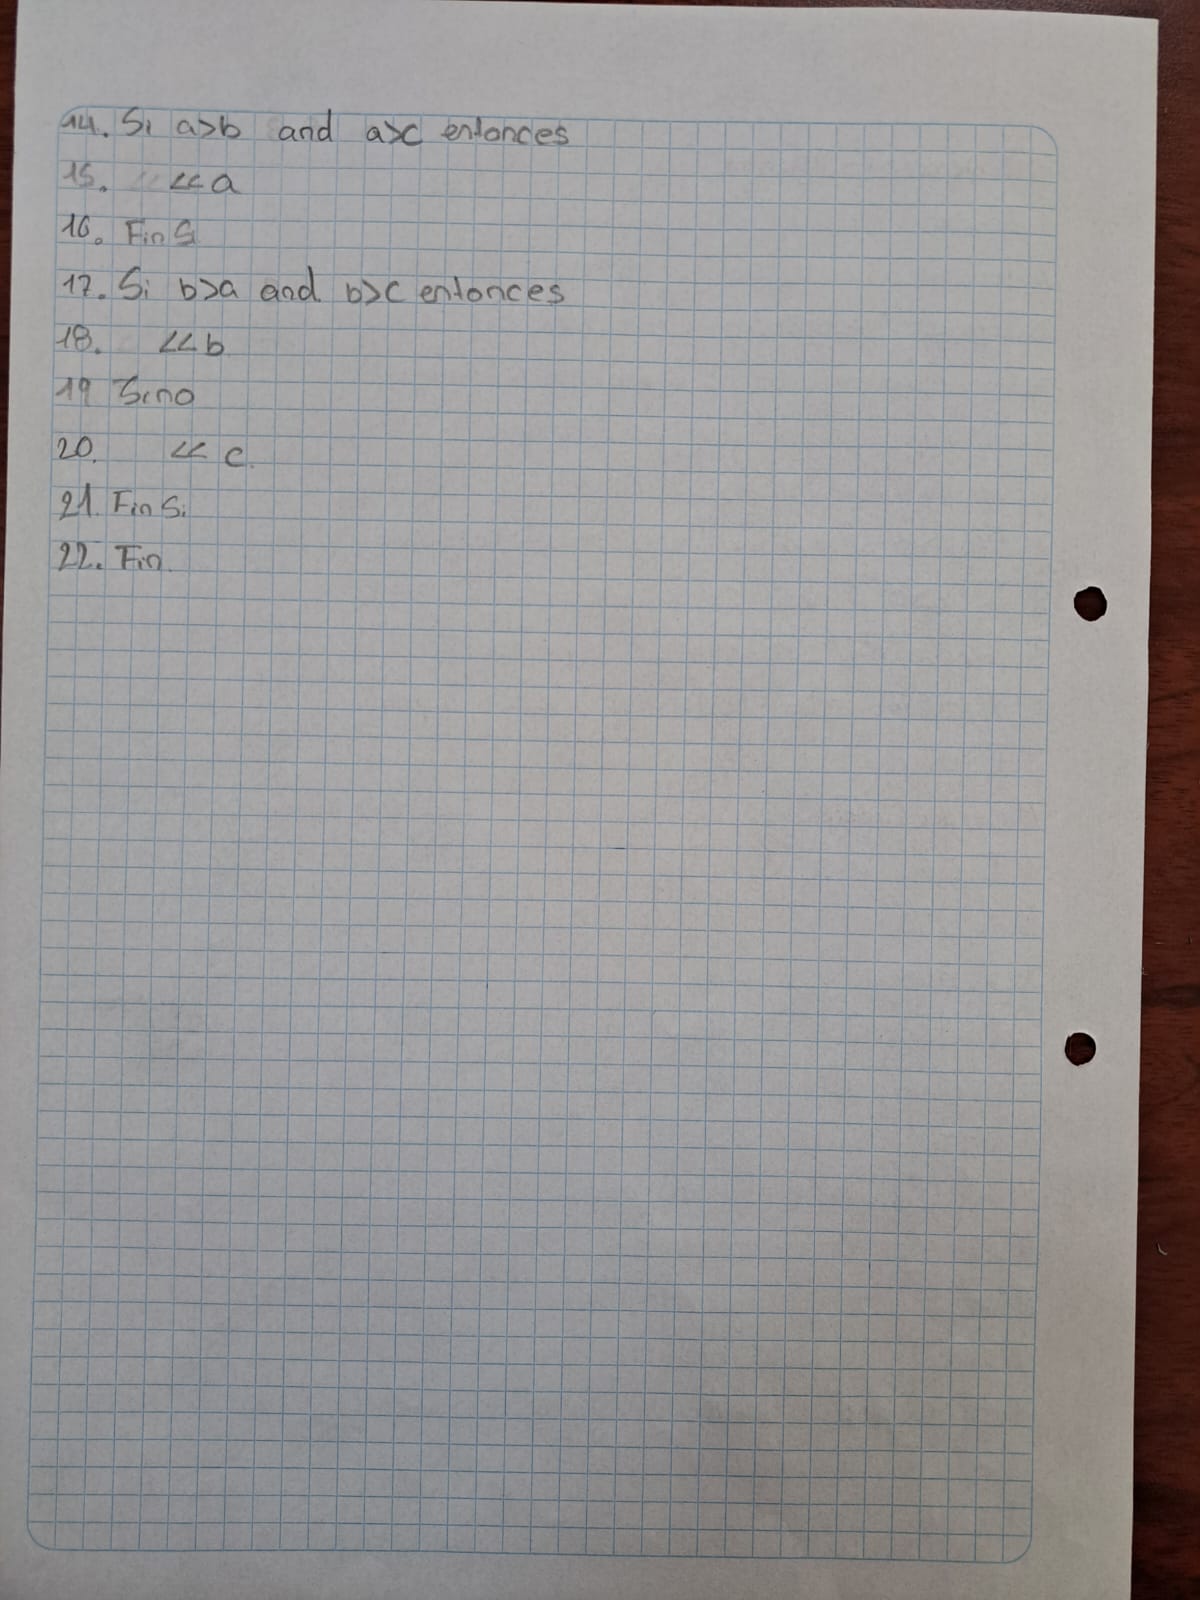 14. Si a>b and a>c entonces
15. <<a
16. Fin Si
17. Si b>a and b>c entonces
18. <<b
19 Sino
20. << c.
21. Fin Si
22. Fin.